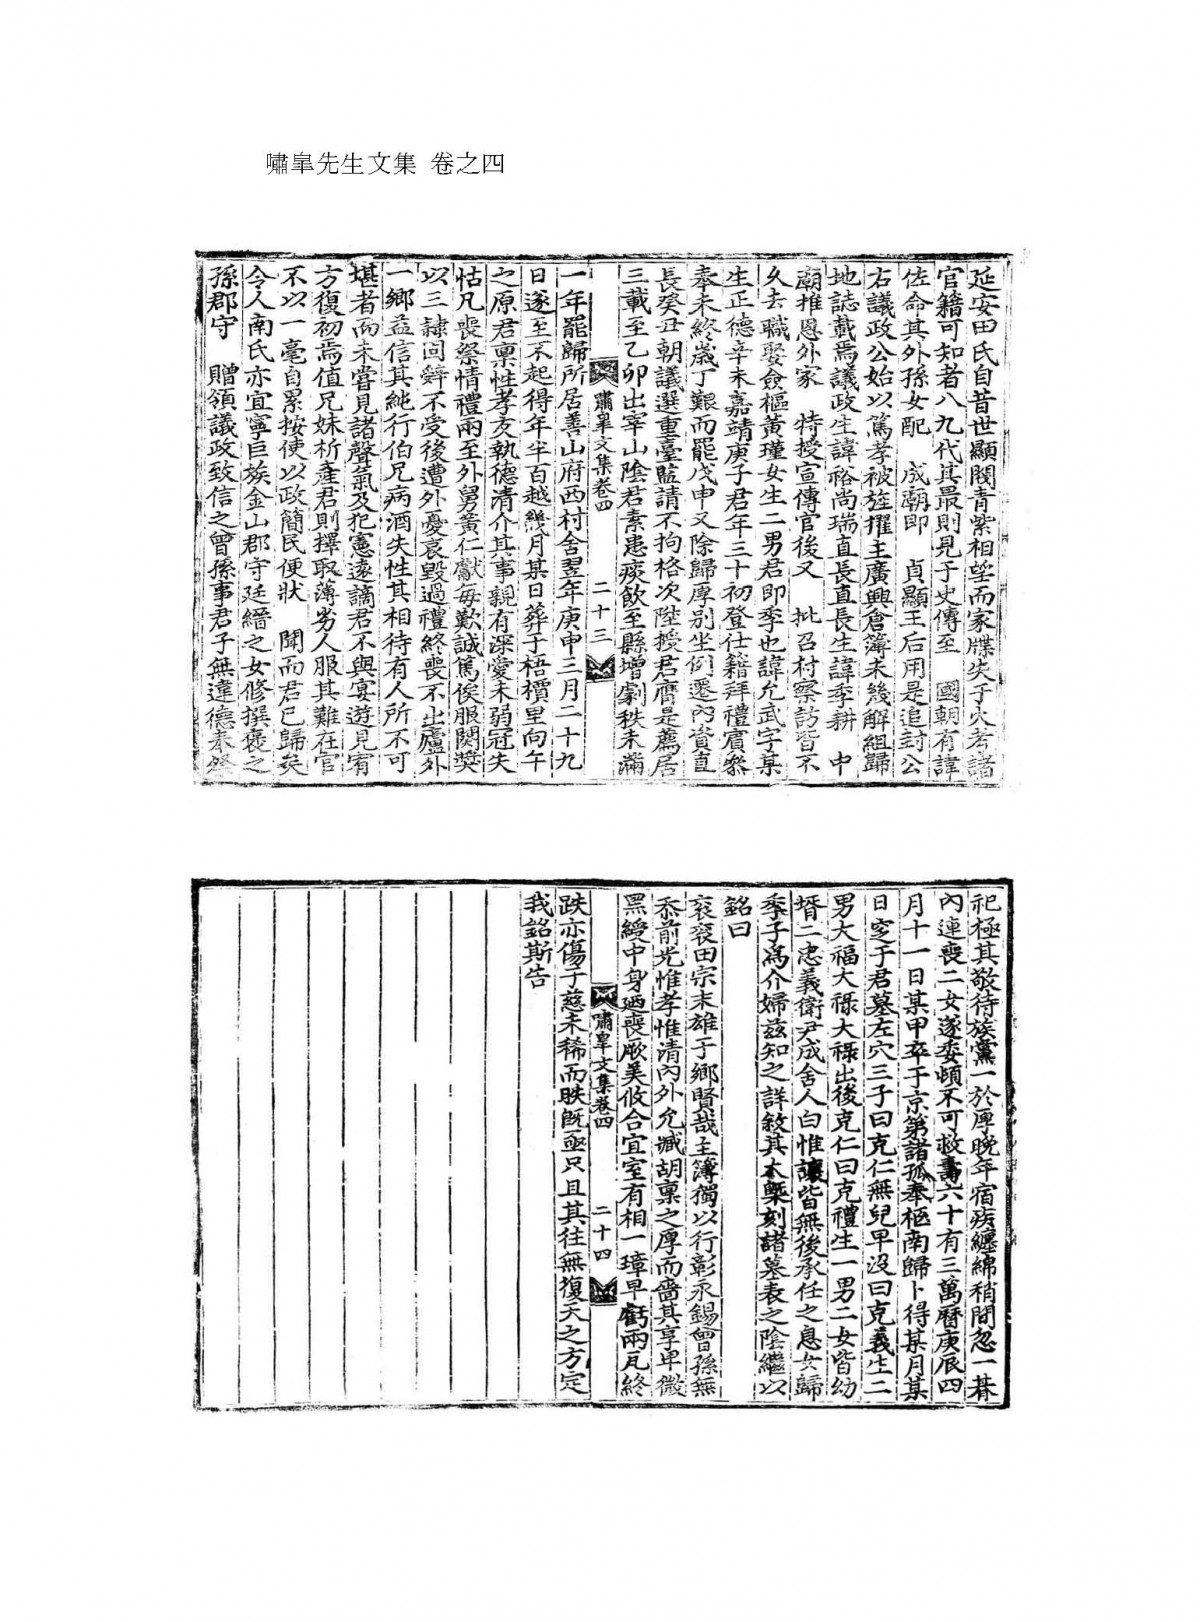 嘯皐先生文集 卷之四
延安田氏自昔世顯閥靑紫相望而家牒失于火考諸
官籍可知者八九代其最則見于史傳至 國朝有諱
佐命其外孫女配 成廟卽 貞顯王后用是追封公
右議政公始以篤孝被旌擢主廣興倉簿未幾解組歸
地誌載焉議政生諱裕尙瑞直長直長生諱季耕 中
廟推恩外家 特授宣傳官後又 批召村察訪皆不
久去職娶僉樞黃瑾女生二男君卽季也諱允武字某
生正德辛未嘉靖庚子君年三十初登仕籍拜禮賓參
奉未終歲丁艱而罷戊申又除歸厚別坐例遷內資直
長癸丑朝議選重臺監請不拘格次陞授君膺是薦居
三載至乙卯出宰山陰君素患痰飮至縣增劇秩未滿
嘯皐文集卷四 二十三
一年罷歸所居善山府西村舍翌年庚申三月二十九
日遂至不起得年半百越幾月某日葬于梧櫃里向午
之原君稟性孝友執德淸介其事親有深愛未弱冠失
怙凡喪祭情禮兩至外舅黃仁獻每歎誠篤俟服闋奬
以三隷回辭不受後遭外憂哀毀過禮終喪不出廬外
一鄕益信其純行伯兄病酒失性其相待有人所不可
堪者而未嘗見諸聲氣及犯憲遠謫君不與宴遊見宥
方復初焉値兄妹析產君則擇取薄劣人服其難在官
不以一毫自累按使以政簡民便狀 聞而君已歸矣
令人南氏亦宜寧巨族金山郡守廷縉之女修撰褒之
孫郡守 贈領議政致信之曾孫事君子無違德奉祭
祀極其敬待族黨一於厚晩年宿疾纏綿稍間忽一朞
內連喪二女遂委頓不可救壽六十有三萬曆庚辰四
月十一日某甲卒于京第諸孤奉柩南歸卜得某月某
日窆于君墓左穴三子曰克仁無兒早沒曰克義生二
男大福大祿大祿出後克仁曰克禮生一男二女皆幼
壻二忠義衛尹成舍人白惟讓皆無後承任之息女歸
季子爲介婦玆知之詳敘其大槩刻諸墓表之陰繼以
銘曰
袞袞田宗末雄于鄕賢哉主簿獨以行彰永錫曾孫無
忝前光惟孝惟淸內外允臧胡稟之厚而嗇其享卑微
黑綬中身廼喪厥美攸合宜室有相一璋早虧兩瓦終
嘯皐文集卷四 二十四
跌亦傷于慈未稀而昳旣亟只且其往無復天之方定
我銘斯告